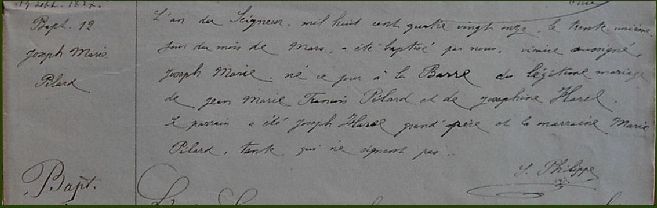 Bapt. 12
Joseph Marie
Pilard
L'an du Seigneur, mil huit cent quatre vingt onze, le trente unième
jour du mois de Mars, a été baptisé par nous, vicaire soussigné
Joseph Marie, né ce jour à la Barre du légitime mariage
de Jean Marie Francis Pilard et de Joséphine Harel.
Le parrain a été Joseph Harel grand'père et la marraine Marie
Pilard, tante qui ne signent pas.
J. Philippe
Bapt.